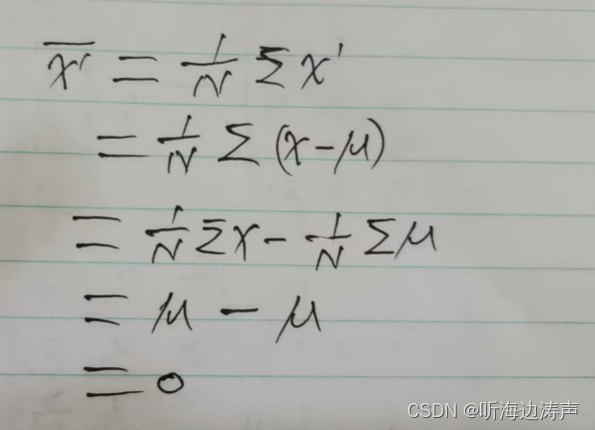 x̄' = 1/N Σ x'
= 1/N Σ (x-μ)
= 1/N Σx - 1/N Σμ
= μ - μ
= 0
CSDN @听海边涛声